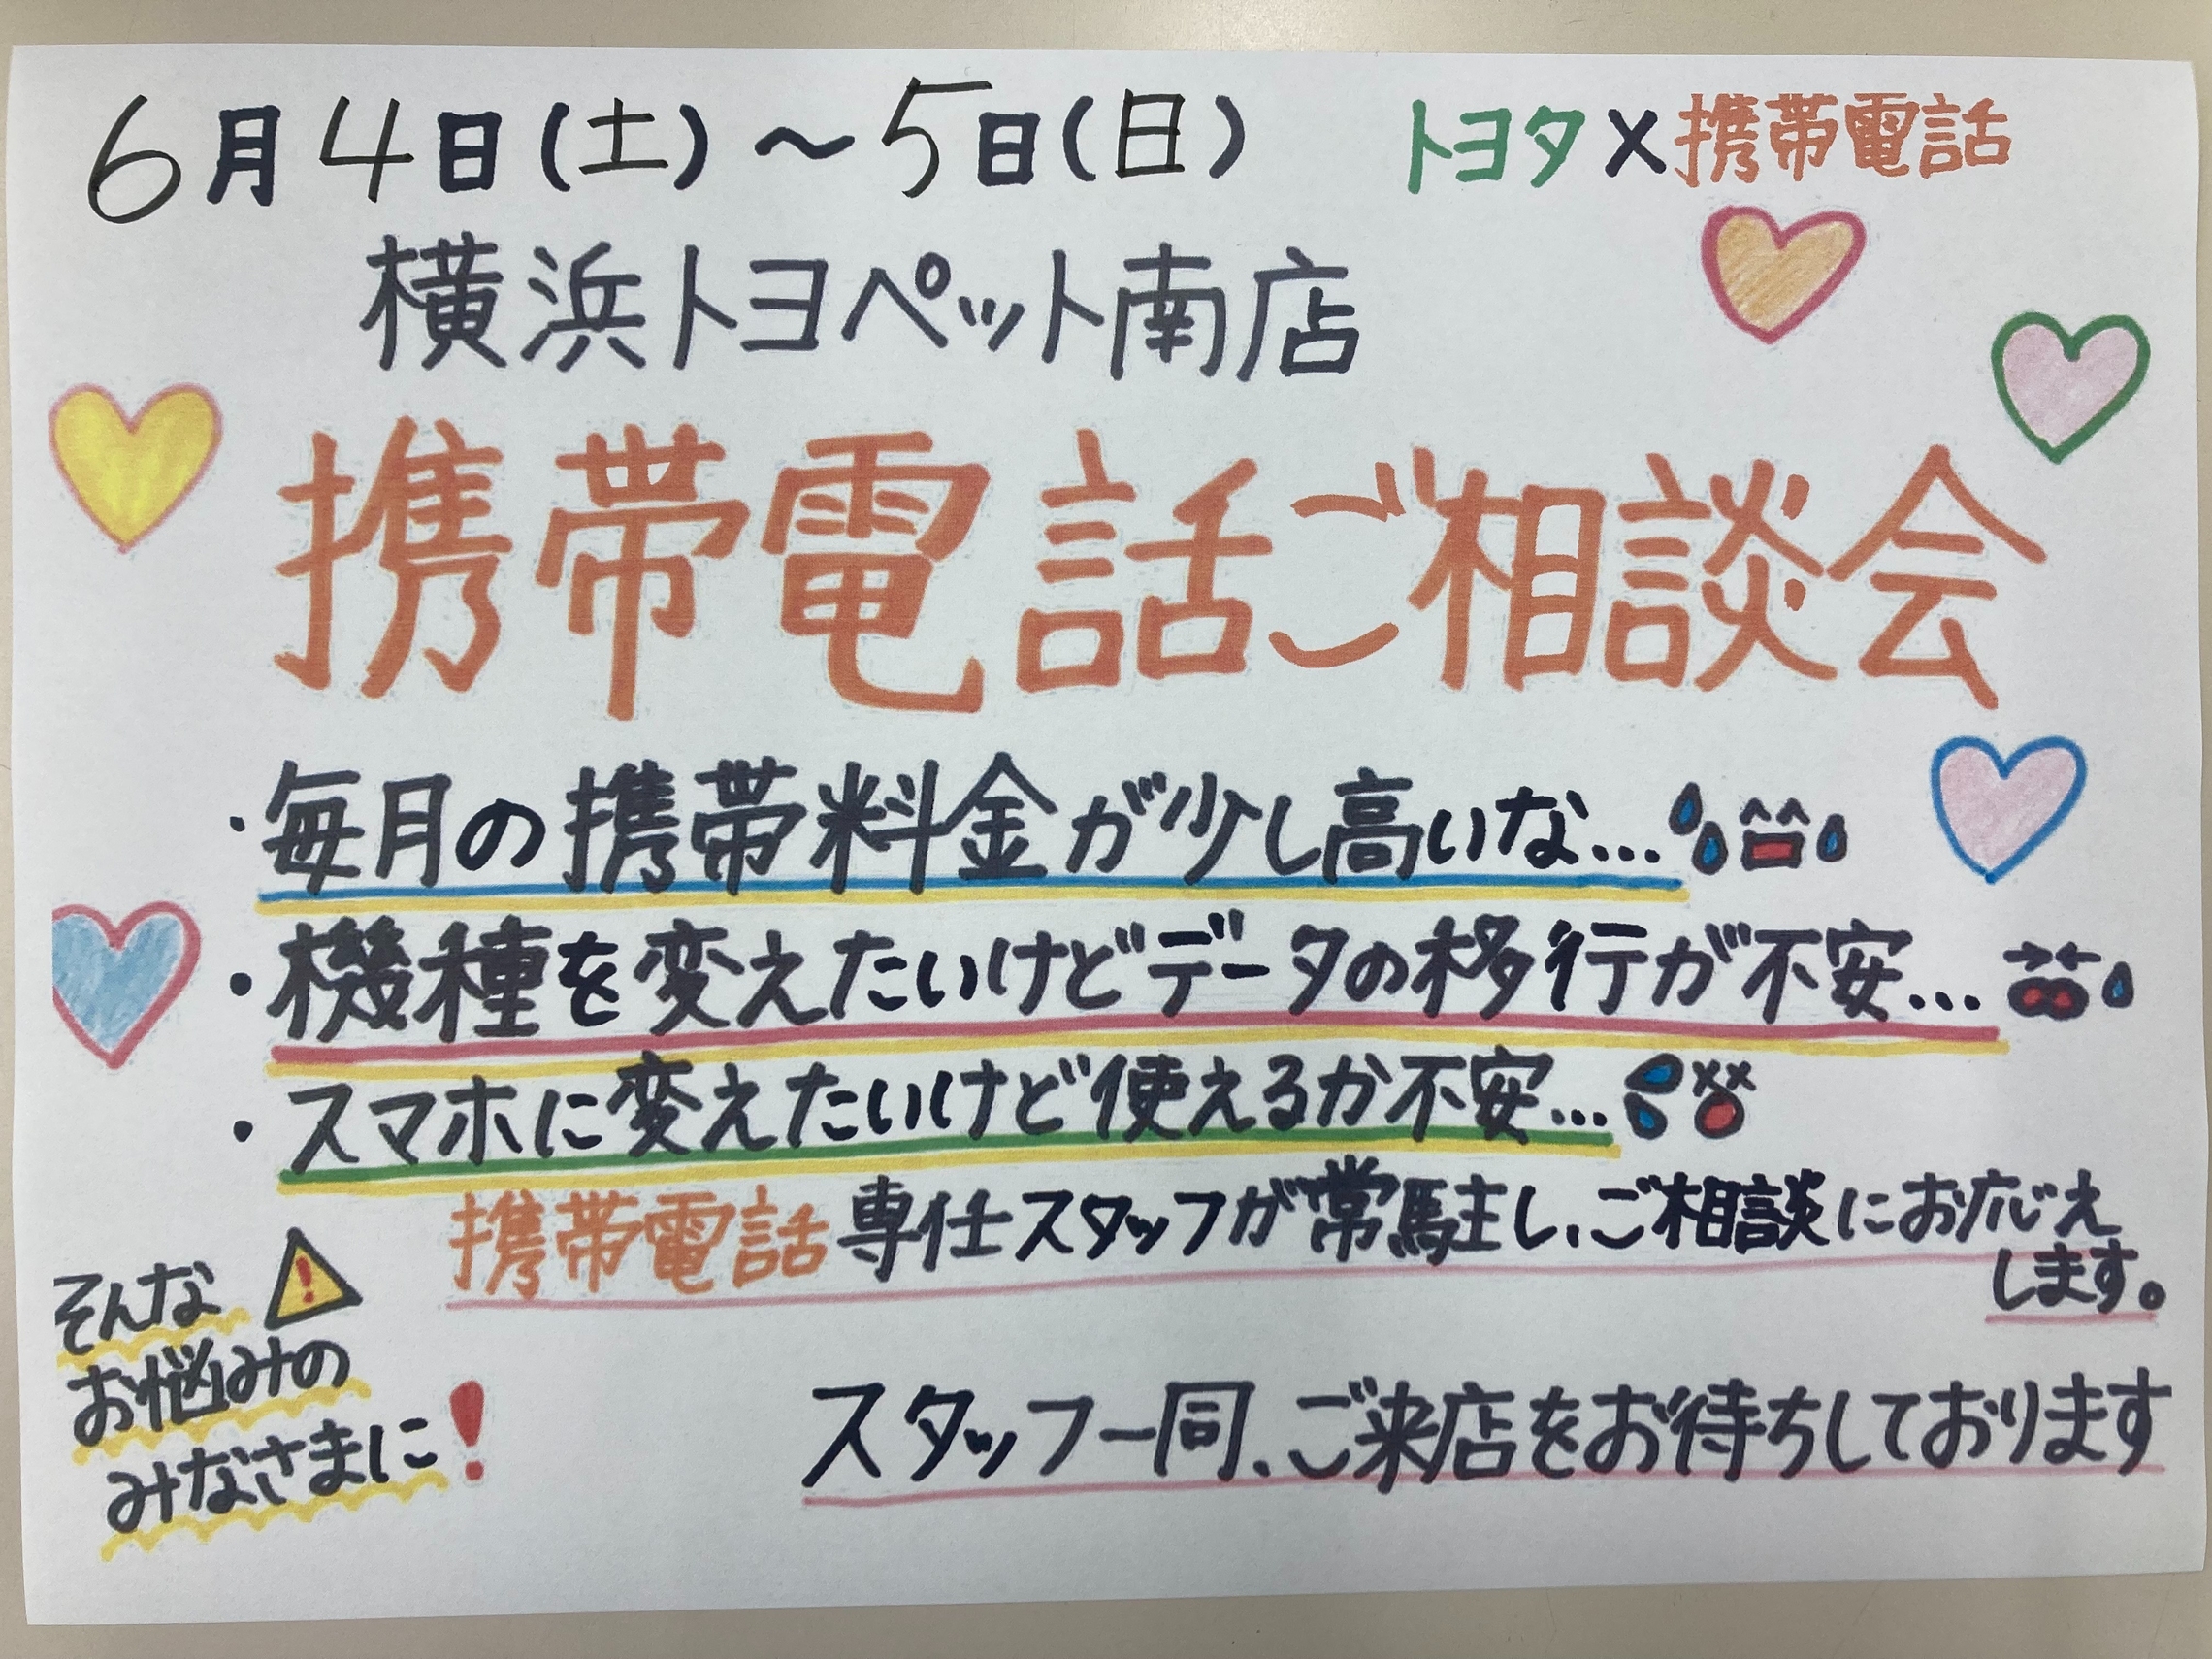 6月4日(土)～5日(日)
トヨタ×携帯電話
横浜トヨペット南店
携帯電話ご相談会
・毎月の携帯料金が少し高いな…
・機種を変えたいけどデータの移行が不安…
・スマホに変えたいけど使えるか不安…
そんな
お悩みの
みなさまに!
携帯電話専任スタッフが常駐し、ご相談にお応え
します。
スタッフ一同、ご来店をお待ちしております